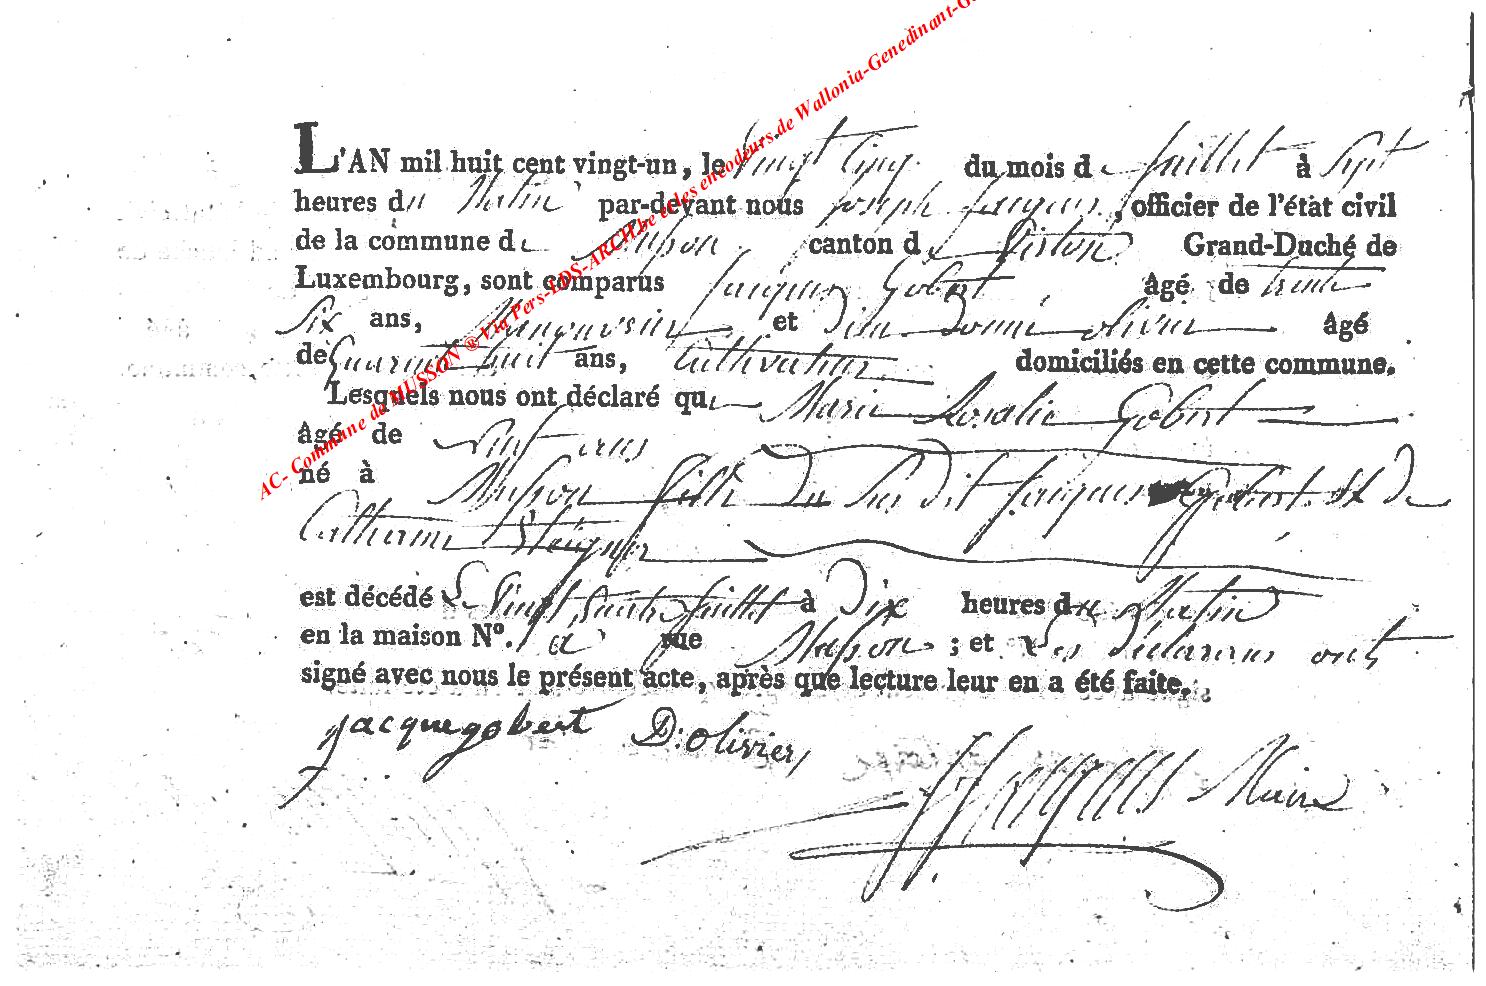 L'AN mil huit cent vingt-un, le vingt Cinq du mois de Juillet à Sept
heures du Matin par-devant nous Joseph Jacques, officier de l'état civil
de la commune de Musson canton de Virton Grand-Duché de
Luxembourg, sont comparus Jacques Gobert âgé de trente
Six ans, Manouvrier et Dieu donné olivier âgé
de Quarante huit ans, Cultivateur domiciliés en cette commune.
Lesquels nous ont déclaré que Marie Rosalie Gobert
âgé de neuf ans
né à Musson fille du Sus dit Jacques Gobert et de
Catherine
est décédé Le Vingt Quatre Juillet à Dix heures du Matin
en la maison N°. a rue Musson ; et Les déclarans ont
signé avec nous le présent acte, après que lecture leur en a été faite.
jacque gobert D: olivier
JJacques Maire
AC- Commune de MUSSON ® Via Pers-LDS-ARCH be et les encodeurs de Wallonia-Genedinant-G